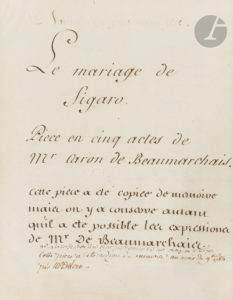 Le mariage de
Figaro.
Piece en cinq actes de
Mr Caron de Beaumarchais.
cette piece a été copiée de mémoire
mais on y a conservé autant
qu'il a été possible les expressions
de Mr De Beaumarchais.
Cette piece a été